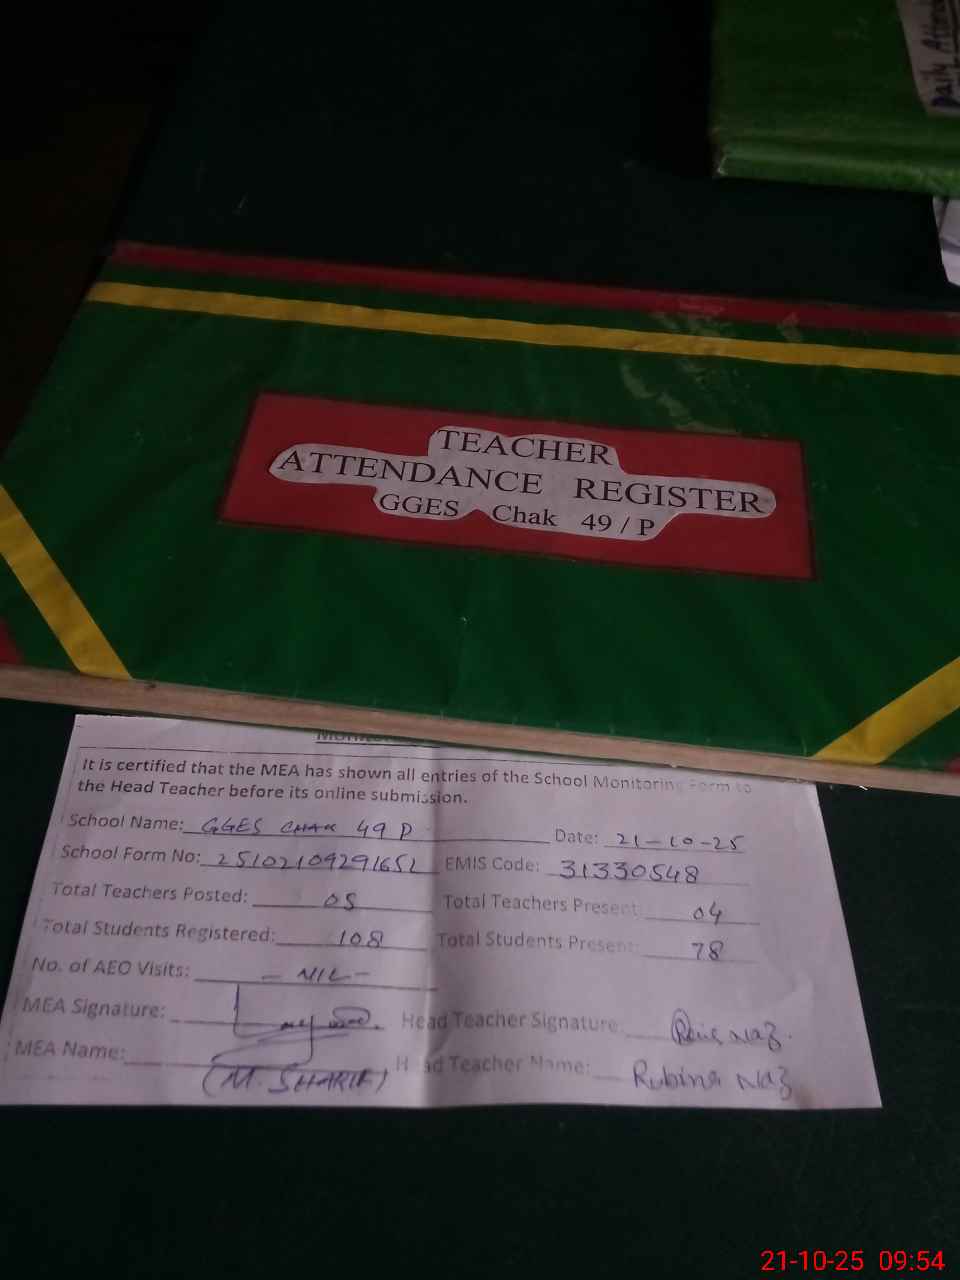 Daily Attend
TEACHER
ATTENDANCE REGISTER
GGES Chak 49 / P
It is certified that the MEA has shown all entries of the School Monitoring Form to
the Head Teacher before its online submission.
School Name: GGES CHAK 49 P Date: 21-10-25
School Form No: EMIS Code: 31330548
Total Teachers Posted: 05 Total Teachers Present: 04
Total Students Registered: 108 Total Students Present: 78
No. of AEO Visits: - NIL -
MEA Signature: Head Teacher Signature: Naz.
MEA Name: (M. SHARIF) Head Teacher Name: Rubina Naz
21-10-25 09:54